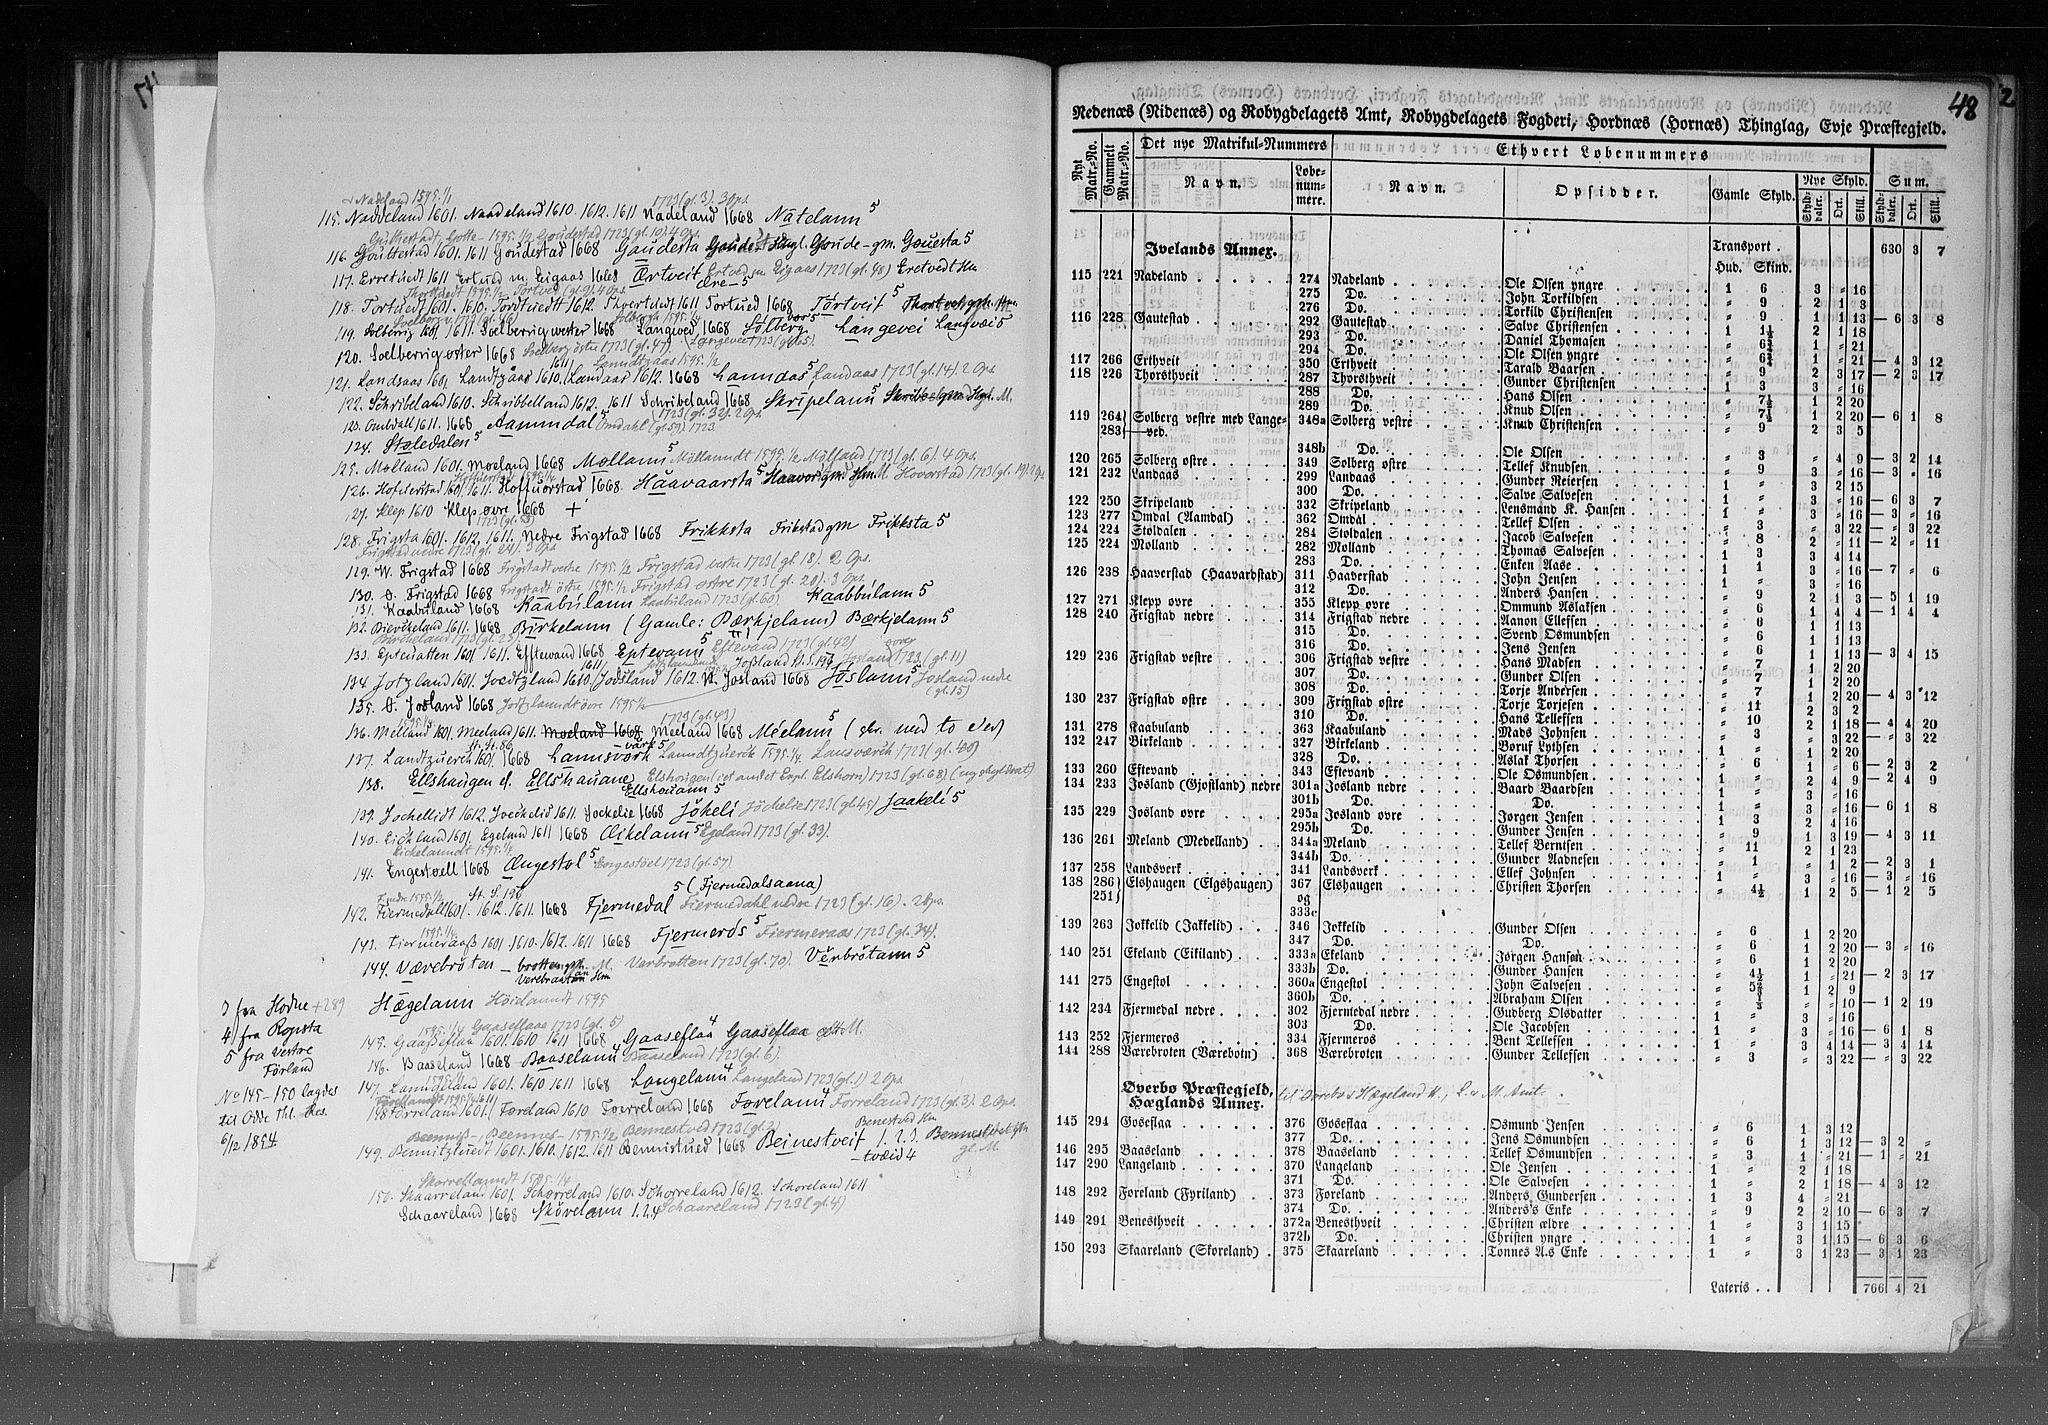 ⅟ Nadeland 1595.½ 1723 (gl. 3). 3 Ops.
115. Naddeland 1601. Naadeland 1610. 1612. 1611 Nadeland 1668 Nätelann 5
Gotte - 1595.½ Goudestad 1723 (gl. 10) 4 Ops
116. Gouttestad 1601. 1611 Goudestad 1668 Gaudesta Goude - gm. Gouesta 5
117. Erretuedt 1611 Ertued m. Eigaas 1668 Ærtveit Ertved m Eigaas 1723 (gl. 48) Eretvedt Hm
Ære- 5
118. Tortuedt 1601. 1610. Tordtuedt 1612. Thortuedt 1611 Tortued 1668 Törtveit 5
119. Solberrig 1601. 1611. Solberrig wester 1668 Langved 1668 Sölberg Langevei Langvæi 5
120. Solberrig oster 1668 Soelberg østre 1723 (gl. 47). Langeveit 1723 (gl. 65).
121. Landsaas 1601 Landtzaas 1610. Landaas 1612. 1668 Lanndas 5 Landaas 1723 (gl. 14). 2 Ops
122. Schribeland 1610. Schribbelland 1612. 1611 Schribeland 1668 Skripelann 5
1723 (gl. 32). 2 Ops.
123. Ombdall 1611. 1668 Aamndal 5 Omdahl (gl. 59) 1723
124. Støledalen 5
125. Molland 1601. Moeland 1668 Mollann 5 Möllanndt 1595.½ Molland 1723 (gl. 6). 4 Ops.
126. Hofuerstad 1601. 1611. Hoffuorstad 1668. Haavaarsta 5 Hovorstad 1723 (gl. 19). 2 Ops
127. Klep 1610 Klep øvre 1668 +
1723 (gl. 53)
128. Frigsta 1601. 1612. 1611. Nedre Frigstad 1668 Frikksta Frikstad gm Frikksta 5
Frigstad nedre 1723 (gl. 24). 3 Ops
129. W. Frigstad 1668 Frigstadt vestre 1595.½ Frigstad vestre 1723 (gl. 18). 2 Ops.
130. Ø. Frigstad 1668 Frigstadt östre 1595.½ Frigstad østre 1723 (gl. 20). 3 Ops
131. Kaabuland 1668 Kaabùlann Kaabuland 1723 (gl. 60) Kaabbùlann 5
132. Bierckeland 1611. 1668 Birkelann (Gamle: Bærkjelann) Bærkjelann 5
Bircheland 1723 (gl. 25).
133. Eptevatten 1601. 1611. Efftewand 1668 Eptevann 5 Eftevand 1723 (gl. 42)
134 Jotzland 1601. Joedtzland 1610. Jodsland 1612. N. Josland 1668 Jöslann 5 Josland nedre
(gl. 15)
135. Ø. Josland 1668 Jotzlanndt övre 1595½
1595.¼ 1723 (gl. 43)
136. Melland 1601. Meeland 1611. Moeland 1668 Meeland 1668 Méelann 5 (skr. med to e'er)
137. Landtzuerch 1601. 1668 Lannsvörk Lanndtzuerck 1595.¼ Lansværch 1723 (gl. 40)
138. Ellshaugen el. Ellshauane Elshougen (et andet Expl. Elshorn) 1723 (gl. 68) (ny skyldsat)
Ellshouann 5
139. Jochellidt 1612. Joeckelid 1611. Jockelie 1668 Jökeli Jöchelie 1723 (gl. 45) Jaakeli 5
140. Eickeland 1601. Egeland 1611 1668 Æikelann 5 Egeland 1723 (gl. 33).
Eichelanndt 1595.¼
141. Engestoell 1668 Ængestol 5 Engestöel 1723 (gl. 57)
5 (Fjermedalsaana)
142. Fiermedall 1601. 1612. 1611. 1668 Fjermedal Fiermedahl nedre 1723 (gl. 16). 2 Ops.
1595.¼
143. Fiermeraaß 1601. 1610. 1612. 1611 1668 Fjermerós 5 Fiermeraas 1723 (gl. 34).
144. Værebröten - M. Verbrotten 1723 (gl. 70). Verbrötann 5
3 fra Hodne +289
4 fra Ropsta
5 fra Vestre
Førland
Hægelann Höielanndt 1595
1595.¼ Gaaseflaae 1723 (gl. 5)
145. Gaaßeflaa 1601. 1610 1611 1668 Gaaseflaa 4 Gaaseflaa M.
146. Baaseland 1668 Baaselann 4 Baaseland 1723 (gl. 6).
No 145-150 lagdes
til Odde Thl. Res.
6/12 1894
147. Langeland 1601. 1610 1611 1668 Langelann 4 Langeland 1723 (gl. 1) 2 Ops
148 Forreland 1601. Foreland 1610 Foerreland 1668 Forelann 4 Forreland 1723 (gl. 3). 2 Ops.
Beennes - 1595.½ Bennestved 1723 (gl. 2) Benestved Hm
149. Bennitztuedt 1601. 1610. 1612. 1611 Bennistued 1668 Beinestveit 1. 2. 3.
- tvæid 4
Skorrelanndt 1595.¼
150. Skaarreland 1601. Schorreland 1610. Schorreland 1612. Schoreland 1611
Schaareland 1668 Skörelann 1. 2. 4 Schaareland 1723 (gl. 4)
48
Nedenæs (Nidenæs) og Robygdelagets Amt, Robygdelagets Fogderi, Hordnæs (Hornæs) Thinglag, Evje Præstegjeld.
Nyt Matr.-No. Gammelt Matr.-No. Det nye Matrikul-Nummers Ethvert Løbenummers
Navn. Løbenummere. Navn. Opsidder. Gamle Skyld. Nye Skyld. Sum.
Skylddaler. Ort. Skill. Skylddaler. Ort. Skill.
Ivelands Annex. Transport . 630 3 7
Hud. Skind.
115 221 Nadeland 274 Nadeland Ole Olsen yngre 1 6 3 " 16
275 Do. John Torkildsen " 9 2 1 3
276 Do. Torkild Christensen " 9 1 1 13 — 6 3 8
116 228 Gautestad 292 Gautestad Salve Christensen 1 1½ 2 1 18
293 Do. Daniel Thomasen " 6¾ 1 " 21
294 Do. Ole Olsen yngre " 6¾ 1 " 21 — 4 3 12
117 266 Erthveit 350 Erthveit Tarald Baarsen " 9 2 3 17 — 2 3 17
118 226 Thorsthveit 287 Thorsthveit Gunder Christensen 1 3 3 " 16
288 Do. Hans Olsen " 7½ 1 2 20
289 Do. Knud Olsen " 7½ 1 2 20 — 6 1 8
119 264 283 Solberg vestre med Langeved. 348a Solberg vestre Knud Christensen " 9 2 3 5
348b Do. Ole Olsen " 3 " 4 9 — 3 2 14
120 265 Solberg østre 349 Solberg østre Tellef Knudsen " 9 3 " 16 — 3 " 16
121 232 Landaas 299 Landaas Gunder Reiersen 1 " 3 2 15
300 Do. Salve Salvesen 1 " 3 " 16 — 6 3 7
122 250 Skripeland 332 Skripeland Lensmand K. Hansen 1 " 3 " 16 — 3 " 16
123 277 Omdal (Aamdal) 362 Omdal Tellef Olsen " 3 " 3 22 — " 3 22
124 224 Stoldalen 284 Stoldalen Jacob Salvesen " 8 2 " 11 — 2 " 11
125 224 Molland 282 Molland Thomas Salvesen 1 3 3 4 14
283 Do. Enken Aase 1 1 3 " 16 — 7 " 6
126 238 Haaverstad (Haavardstad) 311 Haaverstad John Jensen 1 " 3 " 16
312 Do. Anders Hansen " 9 2 1 3 — 5 1 19
127 271 Klepp øvre 355 Klepp øvre Ommund Aslaksen " 6 1 4 4 — 1 4 4
128 240 Frigstad nedre 314 Frigstad nedre Aanon Ellefsen " 6 1 1 13
315 Do. Svend Osmundsen " 6 1 1 13
316 Do. Jens Jensen " 6 1 1 13 — 3 4 15
129 236 Frigstad vestre 306 Frigstad vestre Hans Madsen " 7 1 2 20
307 Do. Gunder Olsen " 7 1 2 20
308 Do. Torje Andersen " 7 1 2 20 — 4 3 12
130 237 Frigstad østre 309 Frigstad østre Torje Torjesen " 11 2 3 2
310 Do. Hans Tellefsen " 10 2 1 18 — 4 4 20
131 278 Kaabuland 363 Kaabuland Mads Johnsen " 3 " 3 22 — " 3 22
132 247 Birkeland 327 Birkeland Boruf Lythsen 1 " 1 2 20
328 Do. Aslak Thorsen " 6 1 " 6 — 2 3 2
133 260 Eftevand 343 Eftevand Ole Osmundsen 1 " 2 4 9 — 2 4 9
134 233 Josland (Gjostland) nedre 301a Josland nedre Baard Baardsen 1 " 3 " 16
301b Do. Do. 1 " 3 " 16 — 6 1 8
135 229 Josland øvre 295a Josland øvre Jørgen Jensen 1 3 2 4 16
295b Do. Gunder Jensen " 9 1 3 19 — 4 3 11
136 261 Meland (Medelland) 344a Meland Tellef Berntsen " 11 2 1 23
344b Do. Gunder Aadnesen " 1 " 1 2 — 2 3 1
137 258 Landsverk 341 Landsverk Ellef Johnsen 1 " 3 " 16 — 3 " 16
138 286 251 Elshaugen (Elgshaugen) 367 Elshaugen Christen Thorsen " 4½ 1 2 5 — 1 2 5
og
333c
139 263 Jokkelid (Jakkelid) 346 Jokkelid Gunder Olsen " 6 1 2 20
347 Do. Do. " 6 1 2 20 — 3 " 16
140 251 Ekeland (Eikiland) 333a Ekeland Jørgen Hansen " 6 1 2 20
333b Do. Gunder Hansen " 4½ 1 " 21 — 2 3 17
141 275 Engestol 360a Engestol John Salvesen " 5⅔ 1 2 9
360b Do. Abraham Olsen " ⅓ " " 10 — 1 2 19
142 234 Fjermedal nedre 302 Fjermedal nedre Gudberg Olsdatter 1 " 3 " 16
303 Do. Ole Jacobsen 1 " 3 " 16 — 6 1 8
143 252 Fjermeros 334 Fjermeros Bent Tellefsen 1 " 3 4 14 — 3 4 14
144 288 Værebroten (Værebotn) 368 Værebroten Gunder Tellefsen " 3 " 3 22 — " 3 22
Øverbø Præstegjeld,
Hæglands Annex.
til Øvrebø & Hægeland H., L. & M. Amt.
145 294 Goseflaa 376 Goseflaa Osmund Jensen " 6 1 3 12
377 Do. Jens Osmundsen " 6 1 3 12 — 3 2 "
146 295 Baaseland 378 Baaseland Tellef Osmundsen " 3 1 " 21 — 1 " 21
147 290 Langeland 370 Langeland Ole Jensen 1 " 2 1 18
371 Do. Ole Salvesen 1 " 2 1 18 — 4 3 12
148 292 Foreland (Fyriland) 373 Foreland Anders Gundersen 1 3 4 " 21
374 Do. Anders's Enke " 9 2 2 10 — 6 3 7
149 291 Benesthveit 372a Benesthveit Christen ældre 1 " 3 1 15
372b Do. Christen yngre 1 " 3 1 15 — 6 3 6
150 293 Skaareland (Skoreland) 375 Skaareland Tonnes A.s Enke 1 " 3 1 23 — 3 1 23
Lateris . . 766 4 21